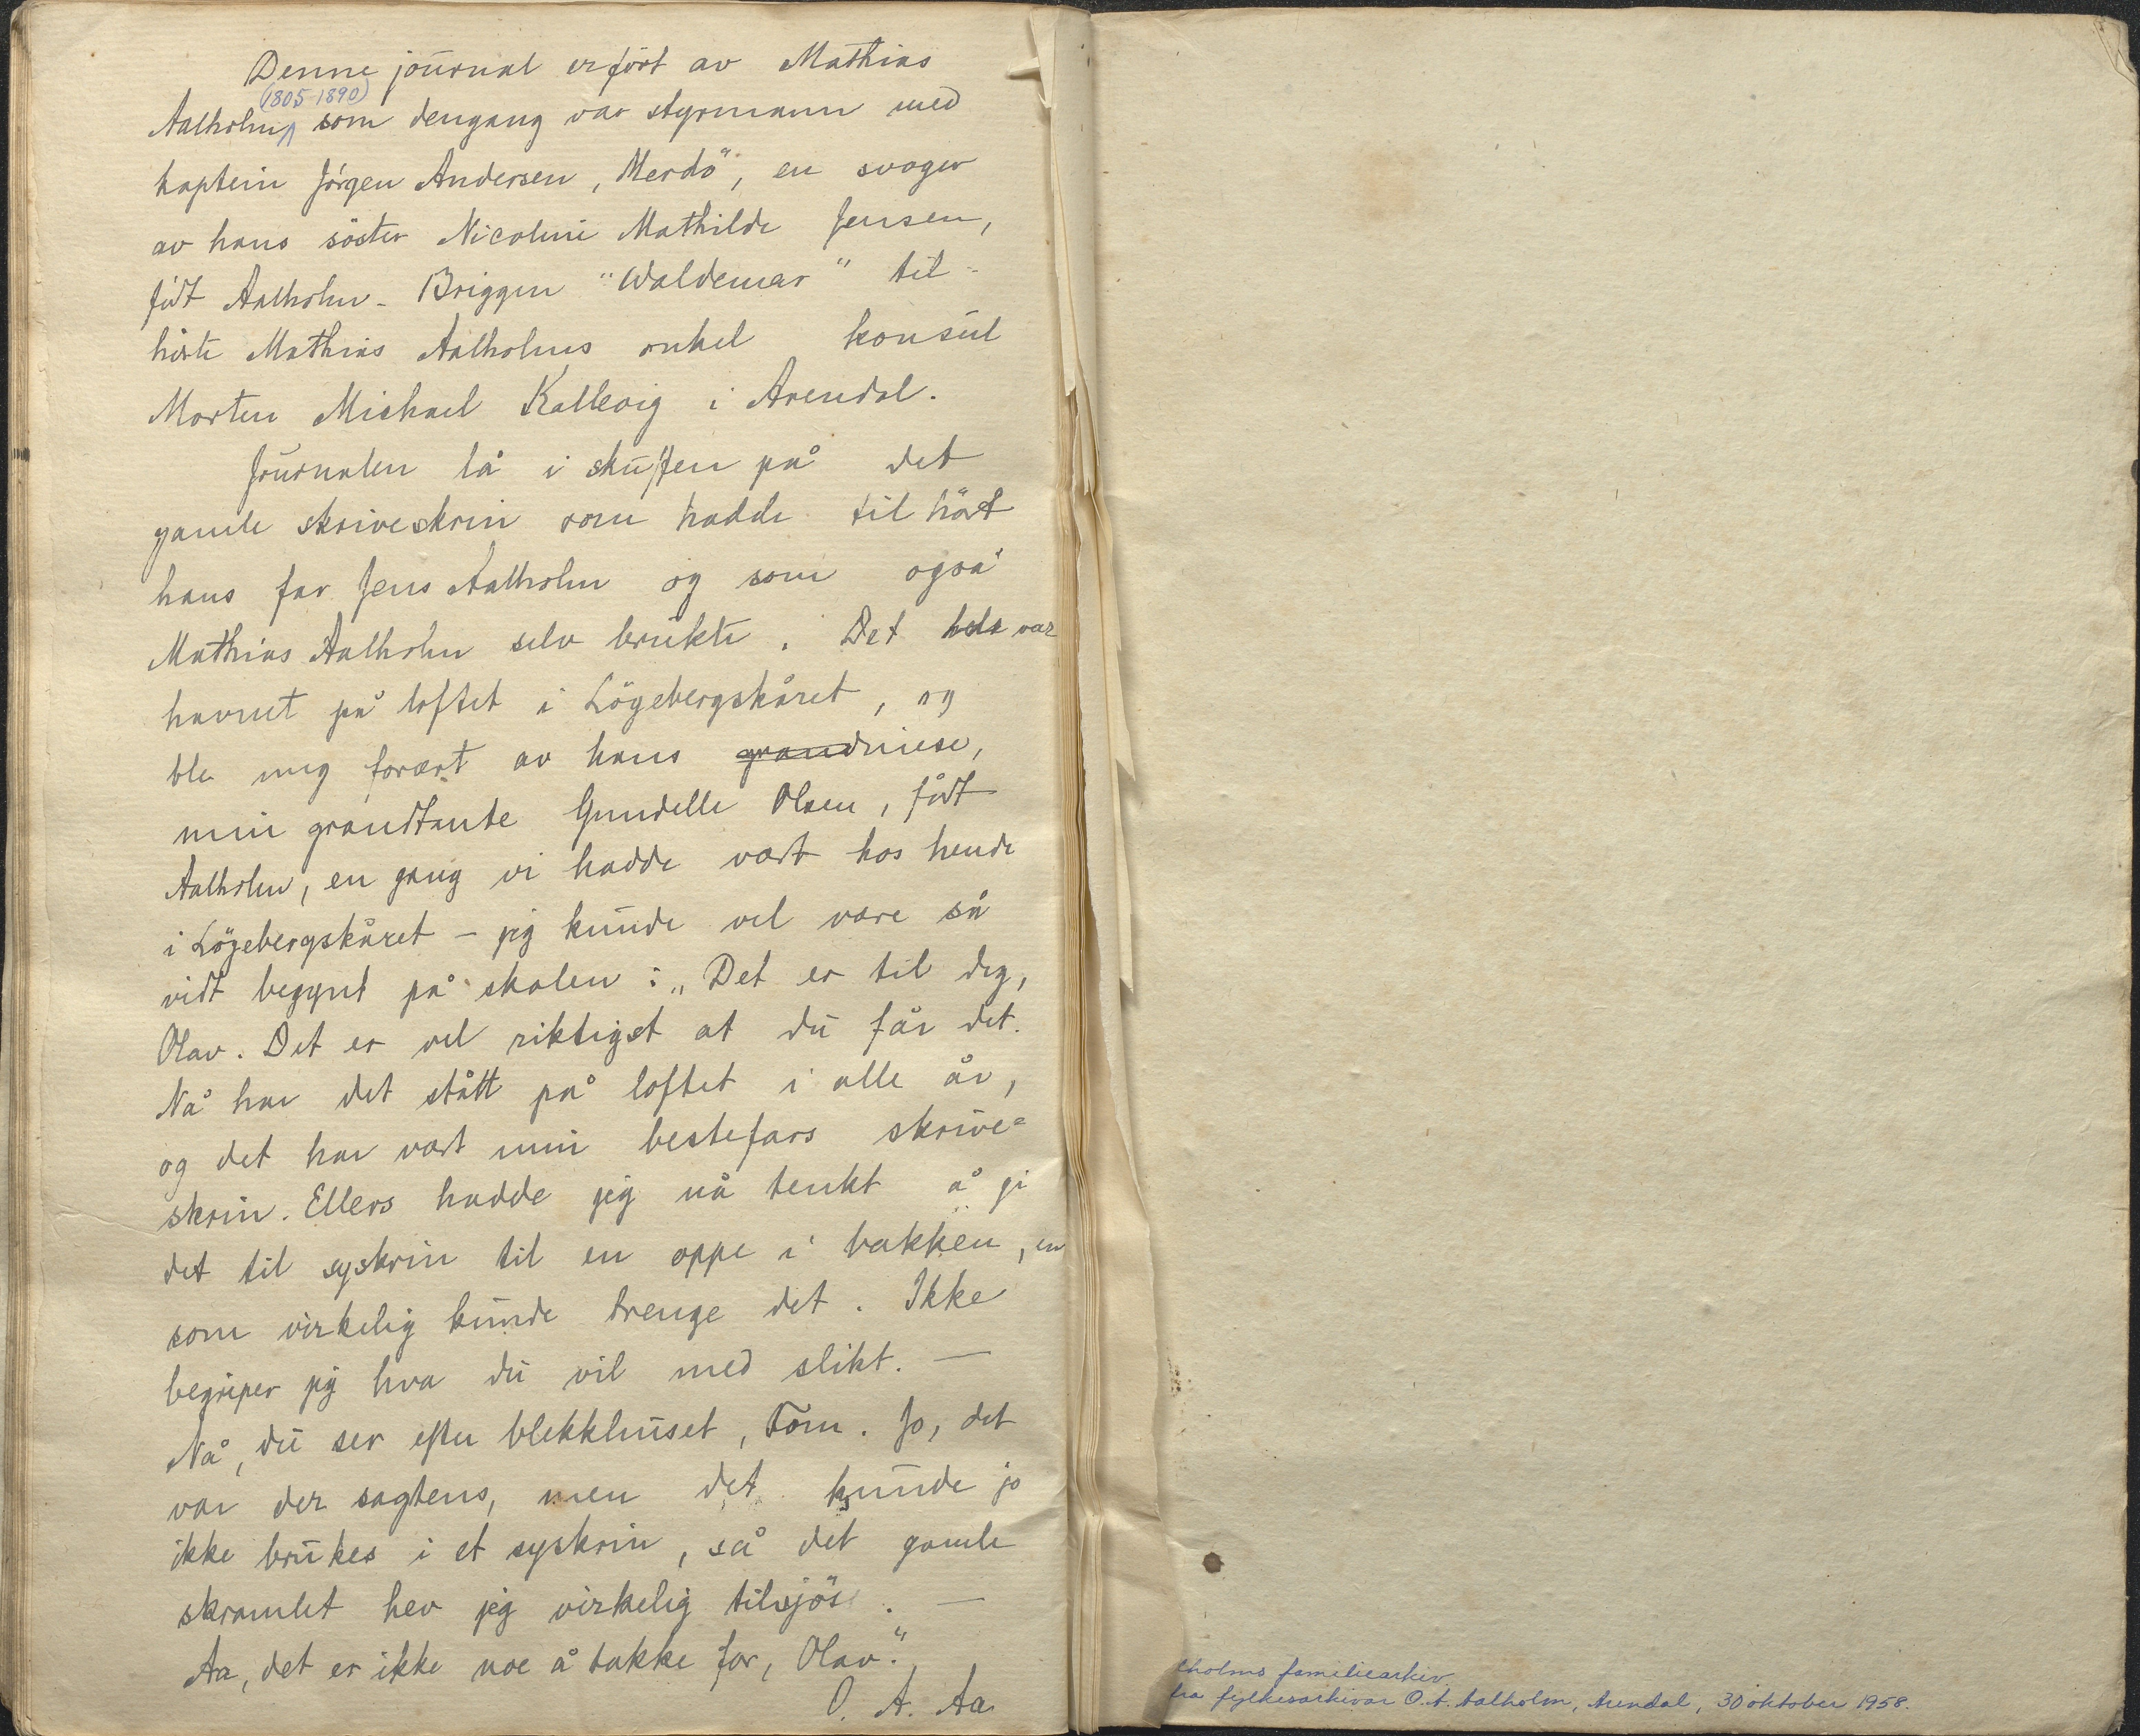 Denne journal er ført av Mathias
(1805-1890)
Aalholm, som dengang var styrmann med
kaptein Jörgen Andersen, Merdö", en svoger
av hans söster Nicoline Mathilde Jensen,
födt Aalholm. Briggen "Waldemar" til-
hörte Mathias Aalholms onkel konsul
Morten Michael Kallevig i Arendal.
Journalen lå i skuffen på det
gamle skriveskrin som hadde tilhört
hans far Jens Aalholm og som også
Mathias Aalholm selv brukte. Det var
havnet på loftet i Lögebergskåret, og
ble meg foræret av hans grandniese,
min grandtante Gundelle Olsen, födt
Aalholm, en gang vi hadde vært hos hende
i Lögebergskåret – jeg kunde vel være så
vidt begynt på skolen: „Det er til deg,
Olav. Det er vel riktigst at du får det.
Nå har det stått på loftet i alle år,
og det har vært min bestefars skrive=
skrin. Ellers hadde jeg nå tenkt å gi
det til syskrin til en oppe i bakken, en
som virkelig kunde trenge det. Ikke
begriper jeg hva du vil med slikt. —
Nå, du ser efter blekkhuset, Tom. Jo, det
var der sagtens, men det kunde jo
ikke brukes i et syskrin, så det gamle
skramlet hev jeg virkelig tilsjös. —
Aa, det er ikke noe å takke for, Olav."
O. A. Aa.
lholms familiearkiv
fra fylkesarkivar O. A. Aalholm, Arendal, 30 oktober 1958.